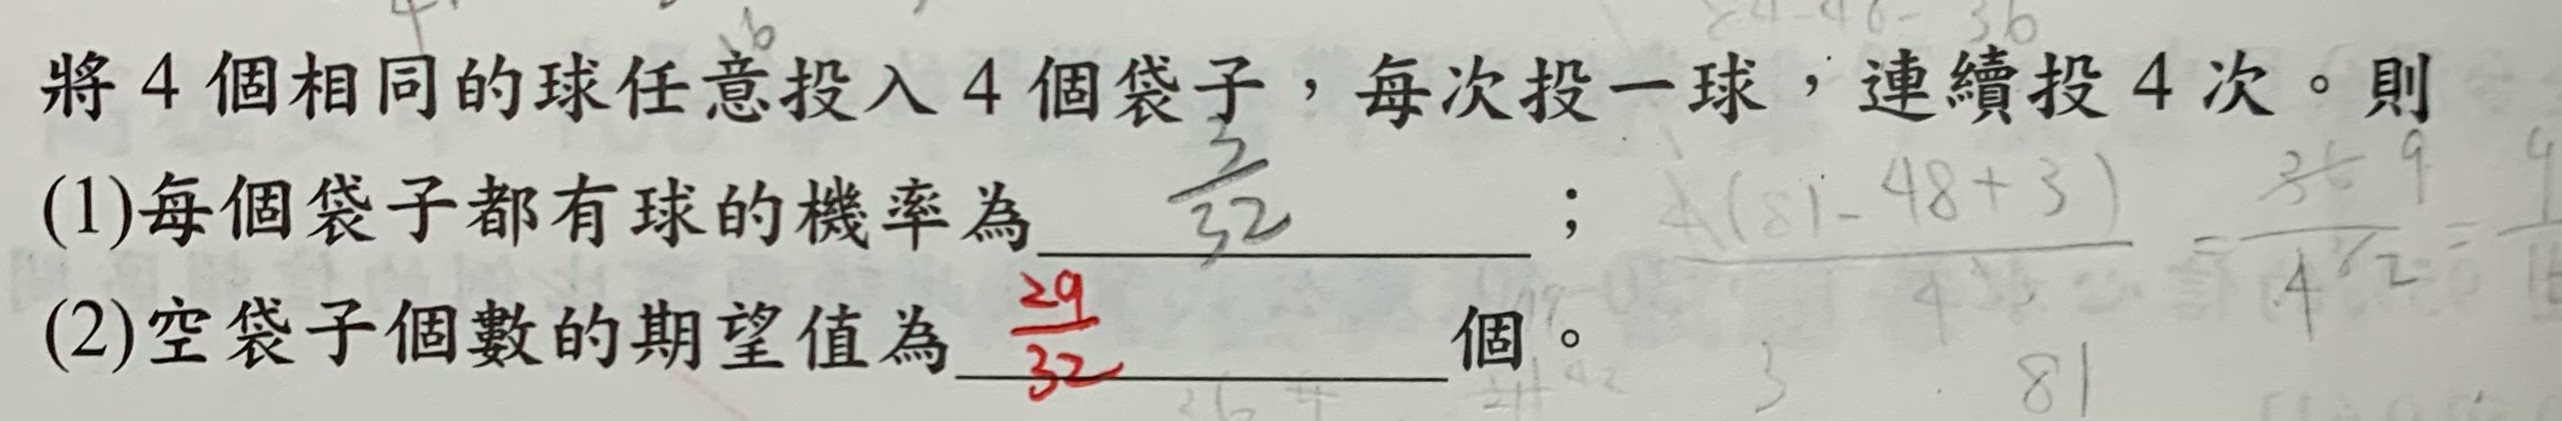 將 4 個相同的球任意投入 4 個袋子，每次投一球，連續投 4 次。則
(1)每個袋子都有球的機率為 3/32 ；
(2)空袋子個數的期望值為 29/32 個。
4(81-48+3)
3 81